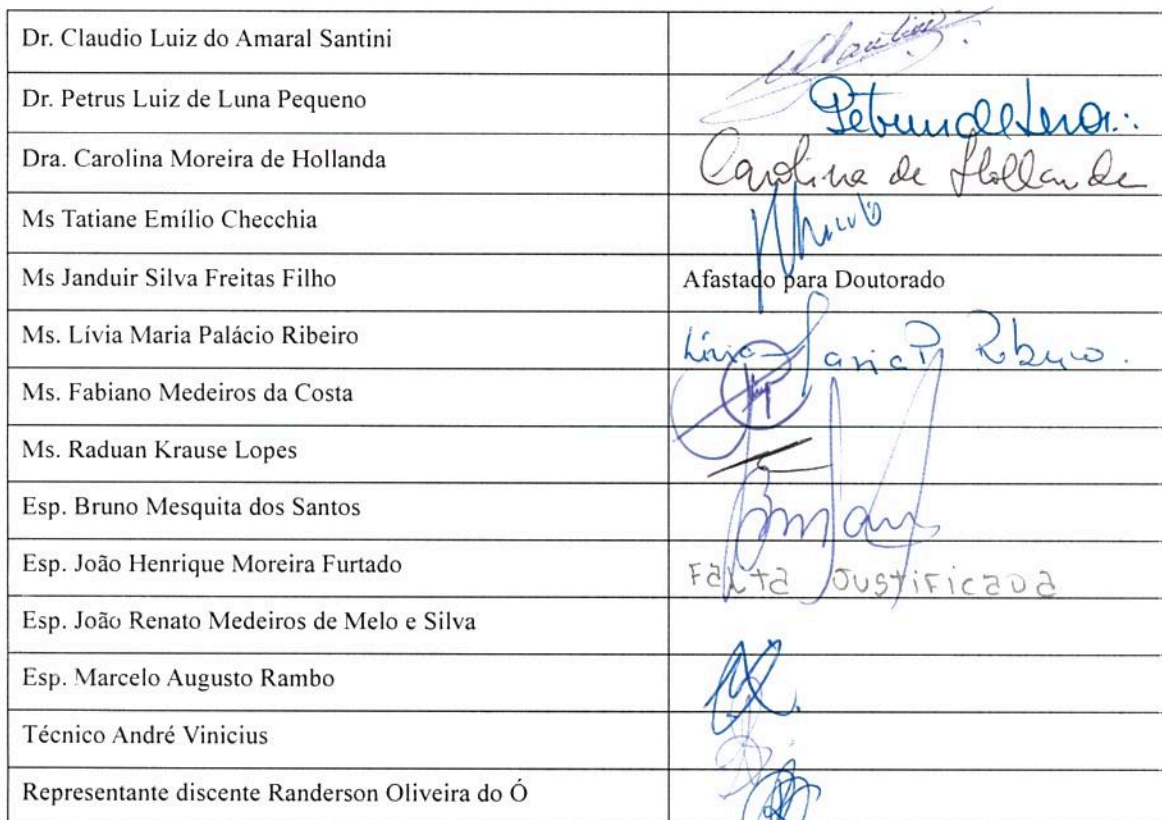 Dr. Claudio Luiz do Amaral Santini
Dr. Petrus Luiz de Luna Pequeno
Dra. Carolina Moreira de Hollanda Carolina de Hollanda
Ms Tatiane Emílio Checchia
Ms Janduir Silva Freitas Filho Afastado para Doutorado
Ms. Lívia Maria Palácio Ribeiro Lívia Maria P Ribeiro.
Ms. Fabiano Medeiros da Costa
Ms. Raduan Krause Lopes
Esp. Bruno Mesquita dos Santos
Esp. João Henrique Moreira Furtado Falta Justificada
Esp. João Renato Medeiros de Melo e Silva
Esp. Marcelo Augusto Rambo
Técnico André Vinicius
Representante discente Randerson Oliveira do Ó